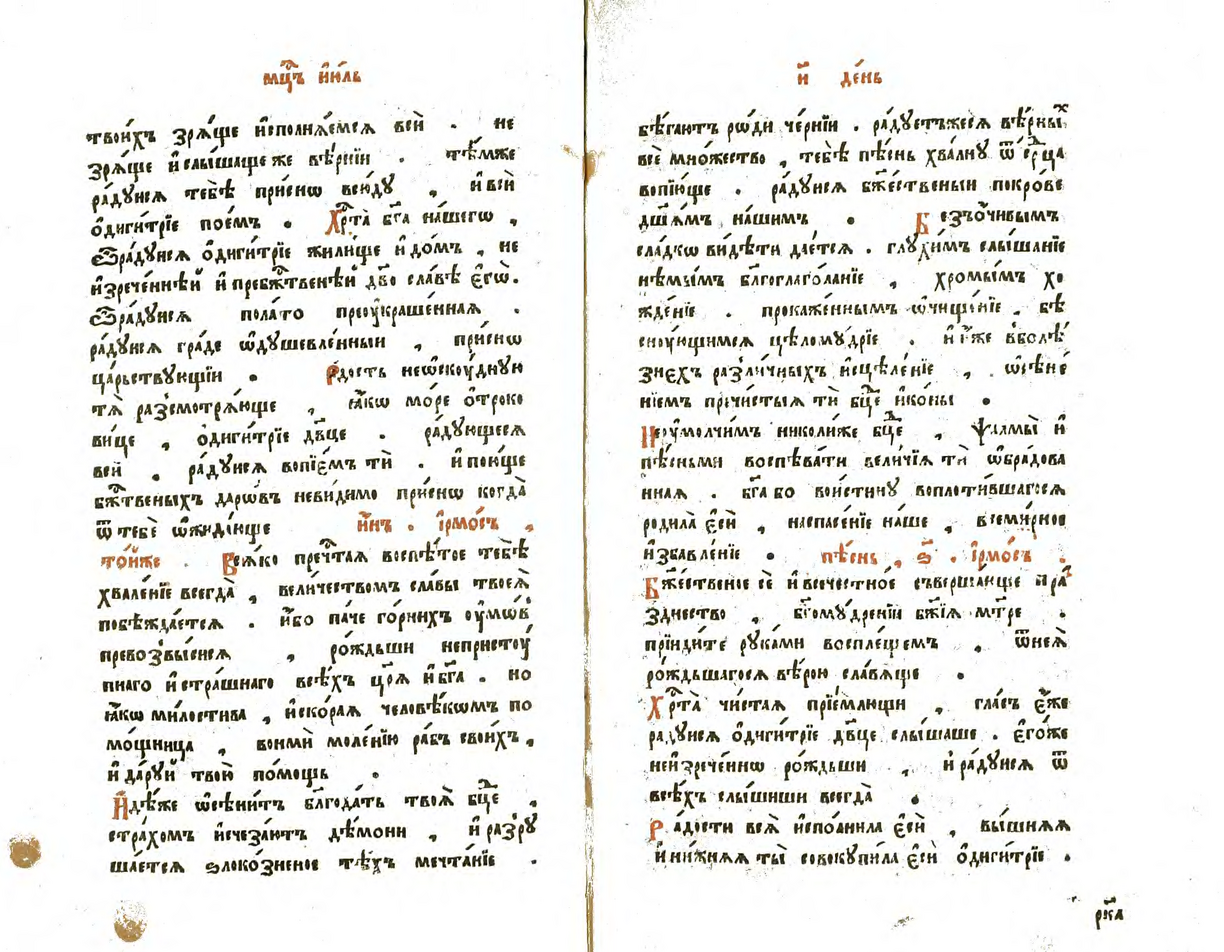 мцⷭ҇ъ і҆ю́ль
твои́хъ зрѧ́ще и҆сполнѧ́емсѧ всѝ . не
зрѧ́ще и҆ слы́шаще же вѣ́рнїи . тѣ́мже
ра́дуйсѧ тебѣ̀ при́снѡ всю́ду , и҆ всѝ
ѻ҆диги́трїе пое́мъ . Хрⷭ҇та̀ бг҃а на́шегѡ ,
ѻ҆диги́трїе жили́ще и҆ до́мъ , не
и҆зрече́ннѣй и҆ пребжⷭ҇твенѣй дв҃о сла́вѣ є҆гѡ̀.
пола́то преоу҆кра́шенная .
ра́дуйсѧ гра́де ѡ҆душевле́нныи , при́снѡ
ца́рьствующїи . Ра́дость неѡскоу́дную
тѧ̀ разсмотрѧ́юще , ꙗ҆́кѡ мо́ре ѻ҆троко
ви́це , ѻ҆диги́трїе дв҃це . ра́дующеся
всѝ , ра́дуйсѧ вопїе́мъ тѝ . и҆ пою́ще
бжⷭ҇твеныхъ даро́въ неви́димо при́снѡ когда̀
ѿ тебѐ ѡ҆жида́юще и҆́нъ . і҆рмо́съ ,
то́йже . Всѧ́ко преч҇таѧ воспѣ́тое тебѣ̀
хвале́нїе всегда̀ , вели́чествомъ сла́вы твоеѧ̀
побѣжда́етсѧ . и҆́бо па́че го́рнихъ оу҆мѡ́въ
превозвы́сисѧ , ро́ждьши непристоу́
пнаго и҆ стра́шнаго всѣ́хъ цр҃ѧ и҆ бг҃а . но
ꙗ҆́кѡ ми́лостива , и҆ ско́рая человѣ́кѡмъ по
мо́щница , вонмѝ моле́нїю ра́бъ свои́хъ ,
и҆ да́руй твою̀ по́мощь .
И҆дѣ́же ѡ҆сѣни́тъ блг҃ода́ть твоѧ̀ бцⷣе ,
стра́хомъ и҆счеза́ютъ де́мони , и҆ разру
ша́етсѧ ѕлоко́зненое тѣ́хъ мечта́нїе .
и҃ де́нь
бѣ́гаютъ рѡ́ди че́рнїи . ра́дуетъжесѧ вѣ́рныⷯ
всѐ мно́жество , тебѣ̀ пѣ́снь хва́лну ѿ се́рⷣца
вопїю́ще . ра́дуйсѧ бж҃е́ственыи покро́ве
дш҃а́мъ на́шимъ . Безъо́чивымъ
сла́дкѡ ви́дѣти дае́тсѧ . глухи́мъ слы́шанїе
нѣмы́мъ блг҃оглаго́ланїе , хромы́мъ хо
жде́нїе . прокаже́ннымъ ѡ҆чище́нїе , бѣ
сноу́ющимсѧ цѣлому́дрїе . и҆ и҆́же в҆ болѣ́
знехъ разли́чныхъ и҆сцѣле́нїе , ѡ҆сѣне́
нїемъ пречи́стыѧ тѝ бцⷣе и҆ко́ны .
Не оу҆мо́лчимъ николи́же бцⷣе , ѱалмы̀ и҆
пѣ́сньми воспѣва́ти вели́чїѧ тѝ ѡ҆бра́дова
ннаѧ . бг҃а бо вои́стину вопло́тившагосѧ
родила̀ є҆сѝ , на спасе́нїе на́ше , всеми́рное
и҆збавле́нїе . пѣ́снь , ѕ҃ . і҆рмо́съ .
Бжⷭ҇е́ственое сѐ и҆ всечестно́е соверша́юще пра́
зднество , бг҃ому́дренїи бж҃їѧ мт҃ре .
прїиди́те рука́ми воспле́щемъ , ѿ неѧ̀
ро́ждьшагосѧ вѣ́рою сла́вѧще .
Хрⷭ҇та̀ чи́стаѧ прїе́млющи , гла́съ є҆́же
ра́дуйсѧ ѻ҆диги́трїе дв҃це слы́шаше . є҆го́же
неи҆зрече́ннѡ ро́ждьши , и҆ ра́дуйсѧ ѿ
всѣ́хъ слы́шиши всегда̀ .
Ра́дости всѧ̀ и҆спо́лнила є҆сѝ , вы́шняя
и҆ ни́жняя ты̀ совокупи́ла є҆сѝ ѻ҆диги́трїе .
рка